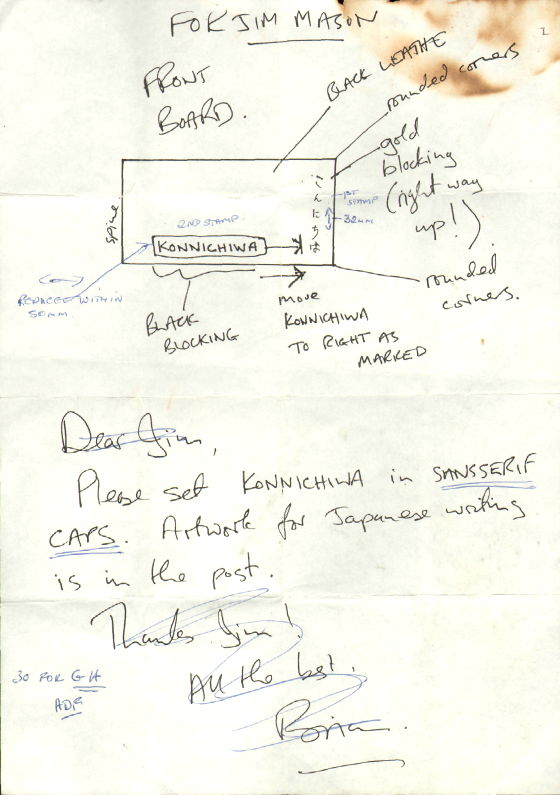 FOR JIM MASON
FRONT
BOARD.
BLACK LEATHE
rounded corners
gold
blocking
(right way
up!)
spine
2ND STAMP
KONNICHIWA
こんにちは
1ST
STAMP
32mm
REDUCE WITHIN
50mm.
BLACK
BLOCKING
move
KONNICHIWA
TO RIGHT AS
MARKED
rounded
corners.
Dear Jim,
Please set KONNICHIWA in SANSSERIF
CAPS. Artwork for Japanese writing
is in the post.
Thanks Jim!
All the best,
Brian.
30 FOR GH